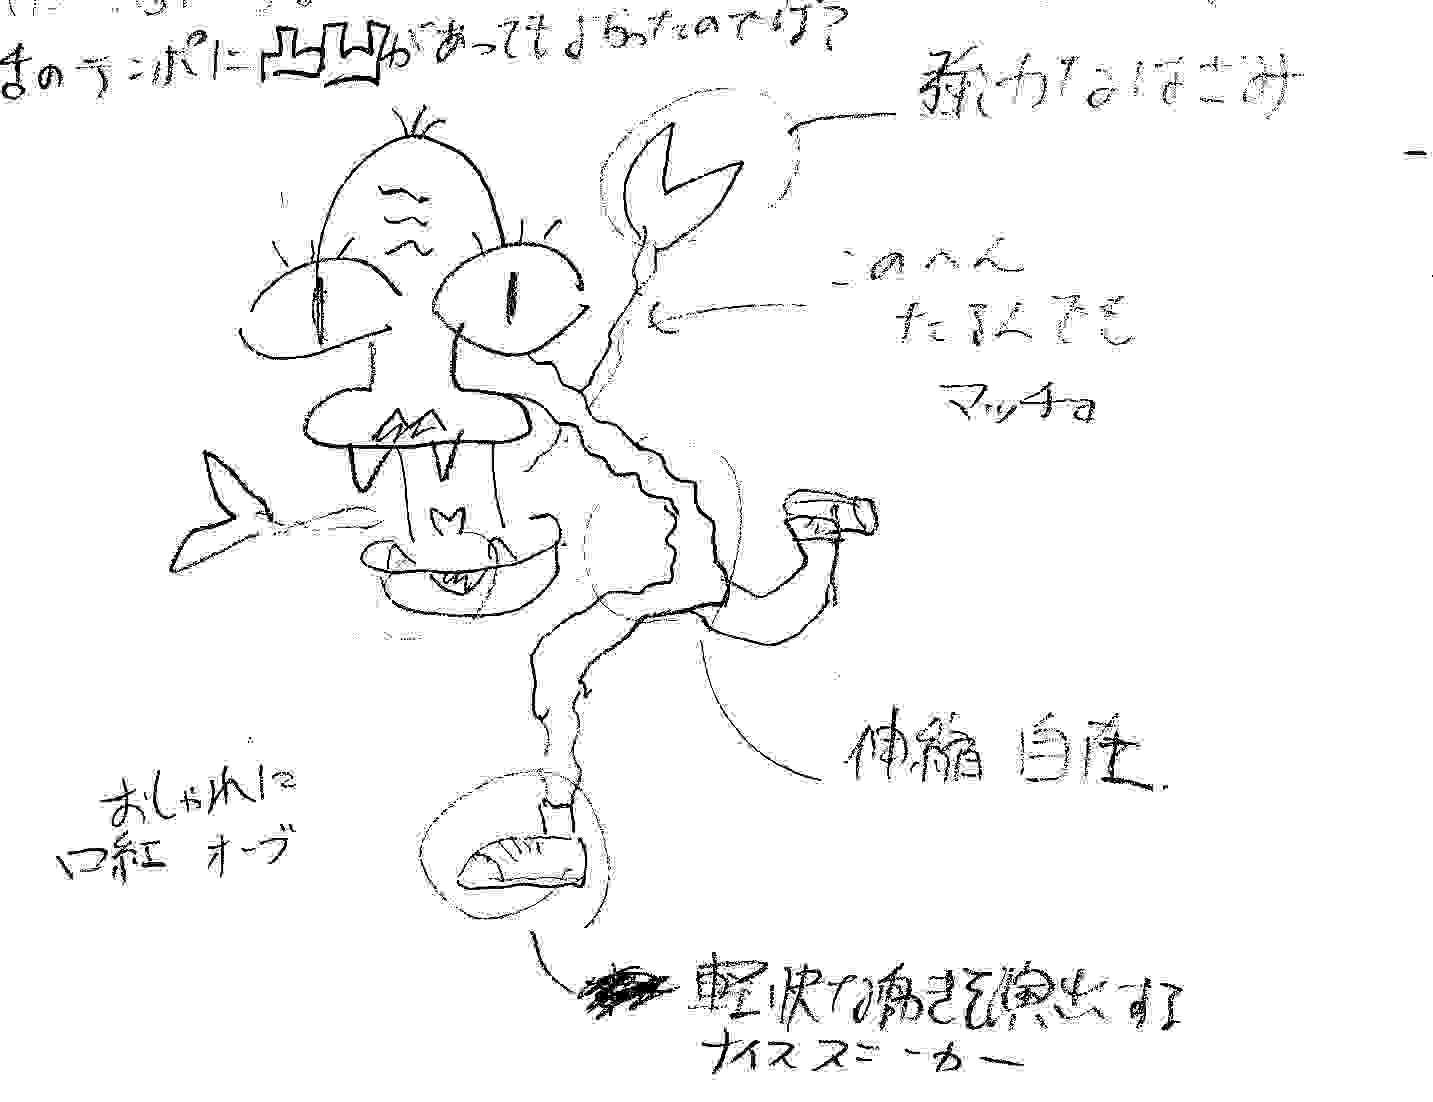 まのテンポに凸凹があってもよかったのでは?
強力なはさみ
このへん
たるんでも
マッチョ
伸縮 自在.
おしゃれに
口紅 オーブ
軽快な動きを演出する
ナイススニーカー